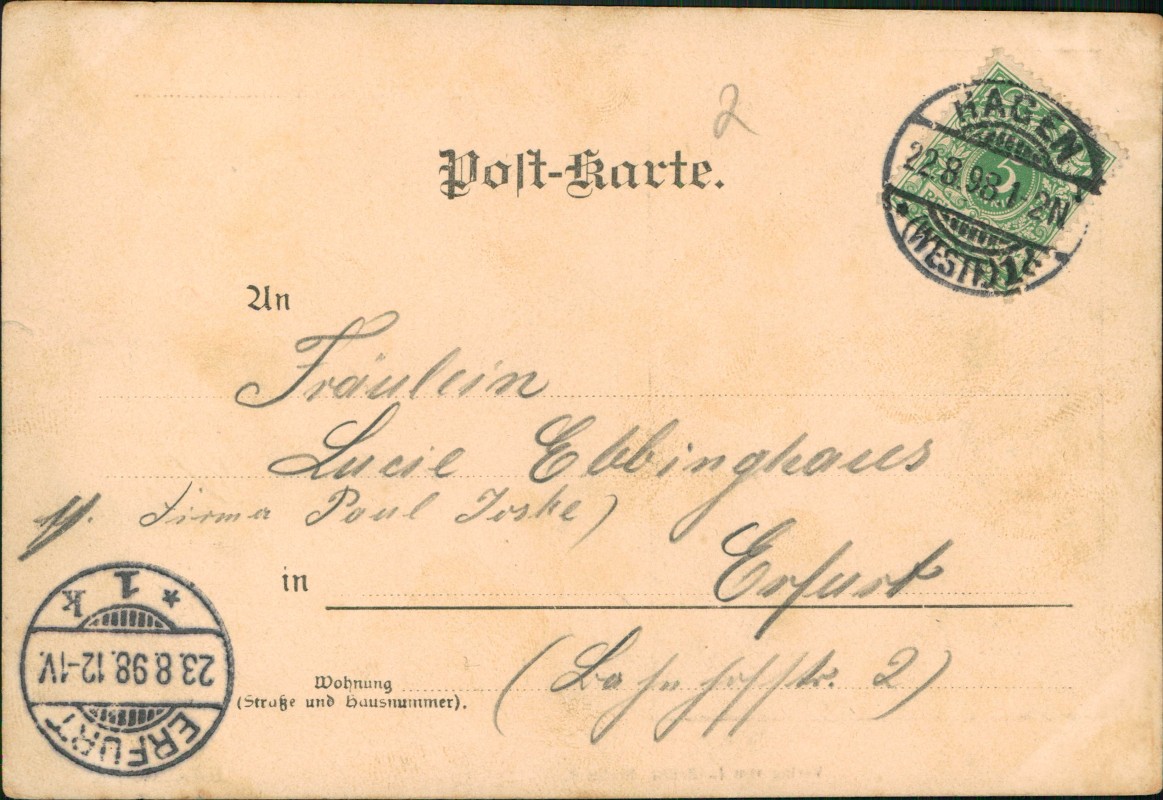 2
Post-Karte.
HAGEN
22.8.98.1-2N
* (WESTF.) 1
5
An
Fräulein
Lucie Ebbinghaus
Firma Paul Joske)
in Erfurt
Wohnung
(Straße und Hausnummer).
(Bahnhofstr. 2)
ERFURT
23.8.98.12-1V.
* 1 k